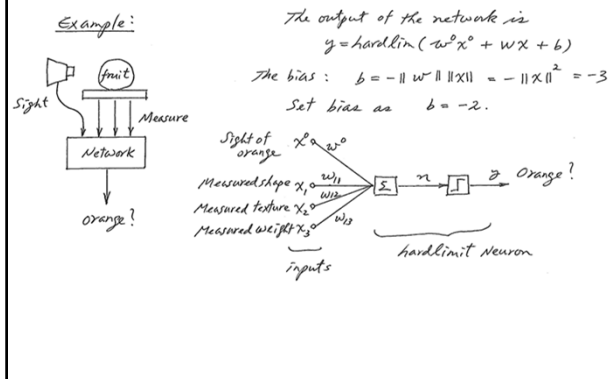 Example:
fruit
Sight
Measure
Network
orange?
The output of the network is
y = hardlim ( w⁰x⁰ + wx + b )
The bias : b = -‖w‖‖x‖ = -‖x‖² = -3
Set bias as b = -2.
Sight of orange x⁰ w⁰
Measured shape x₁ w₁₁
Measured texture x₂ w₁₂
Measured weight x₃ w₁₃
Σ n y Orange?
inputs
hardlimit Neuron